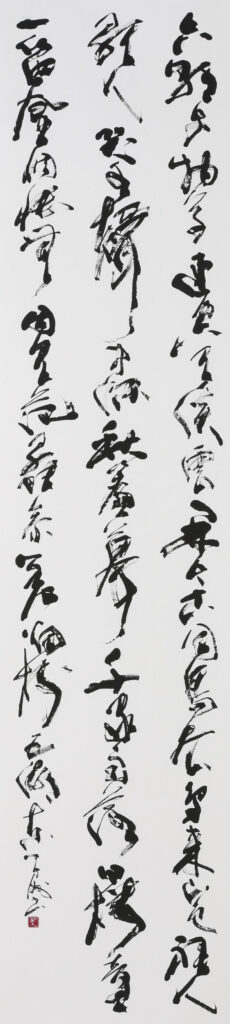 六朝文物草連空天淡雲閑今古同鳥去鳥來山色裡人
歌人哭水聲中深秋簾幕千家雨落日樓臺
一笛風惆悵無因見范蠡參差烟樹五湖東